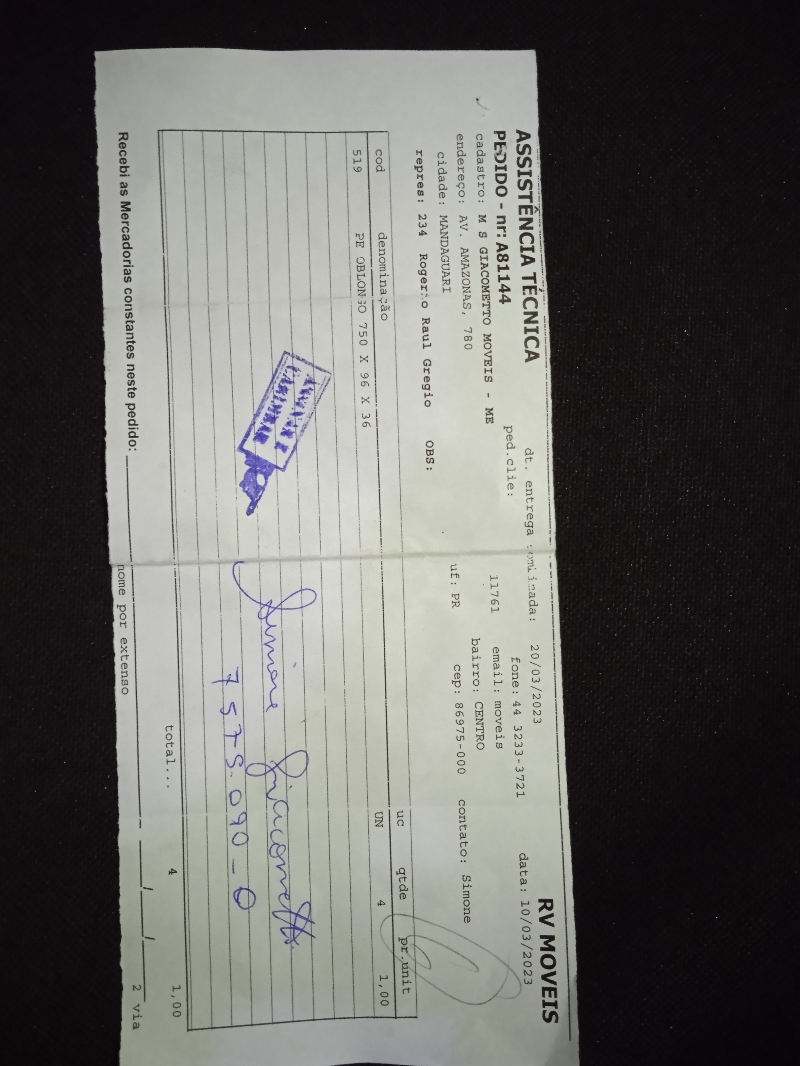 RV MOVEIS
ASSISTÊNCIA TÉCNICA dt. entrega 20/03/2023 data: 10/03/2023
PEDIDO - nr: A81144 ped.clie: fone: 44 3233-3721
cadastro: M S GIACOMETTO MOVEIS - ME 11761 email: moveis
endereço: AV. AMAZONAS, 780 bairro: CENTRO
cidade: MANDAGUARI uf: PR cep: 86975-000 contato: Simone
repres: 234 Rogerio Raul Gregio OBS:
cod denominação uc qtde pr.unit
519 PE OBLONGO 750 X 96 X 36 UN 4 1,00
Simone Giacometto
7575.090-0
total... 4 1,00
Recebi as Mercadorias constantes neste pedido: ____ - __/__/__ 2 via
nome por extenso